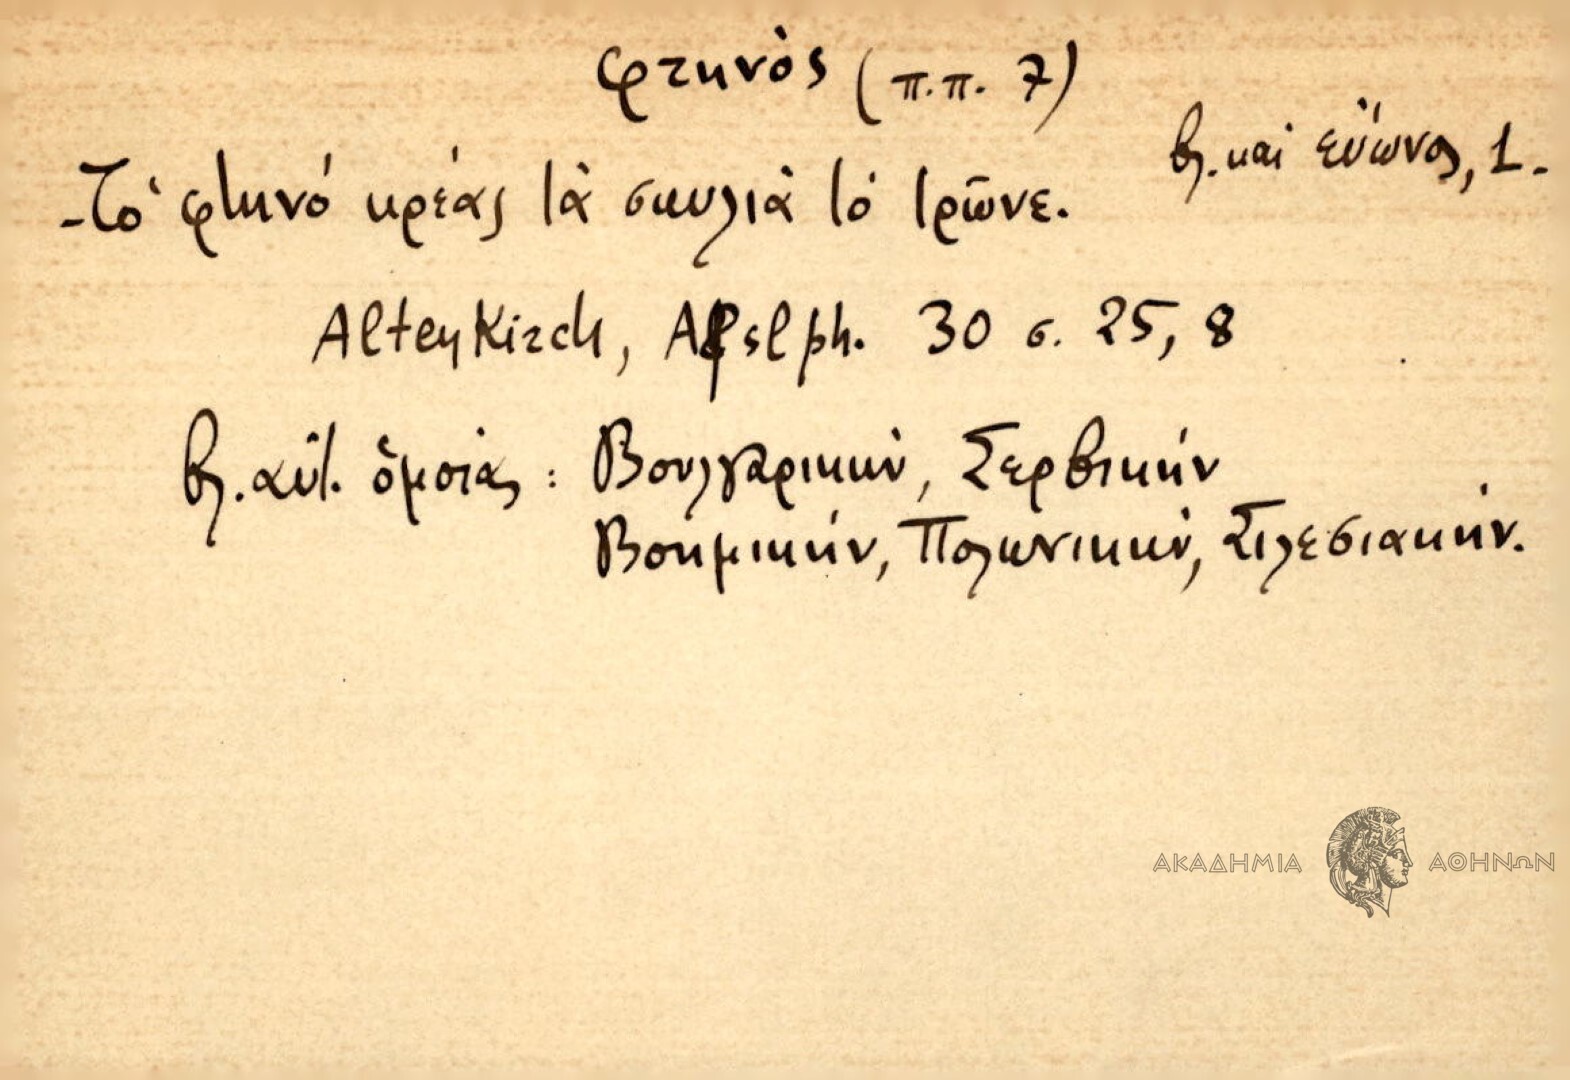 φτηνὸς (π.π. 7)
βλ. καὶ εὔωνος, 1.
-Τὸ φτηνό κρέας τὰ σκυλιὰ τό τρῶνε.
Altenkirch, Afslph. 30 σ. 25, 8
βλ. αὐτ. ὁμοίας: Βουλγαρικὴν, Σερβικήν
Βοημικήν, Πολωνικὴν, Σιλεσιακήν.
ΑΚΑΔΗΜΙΑ ΑΘΗΝΩΝ